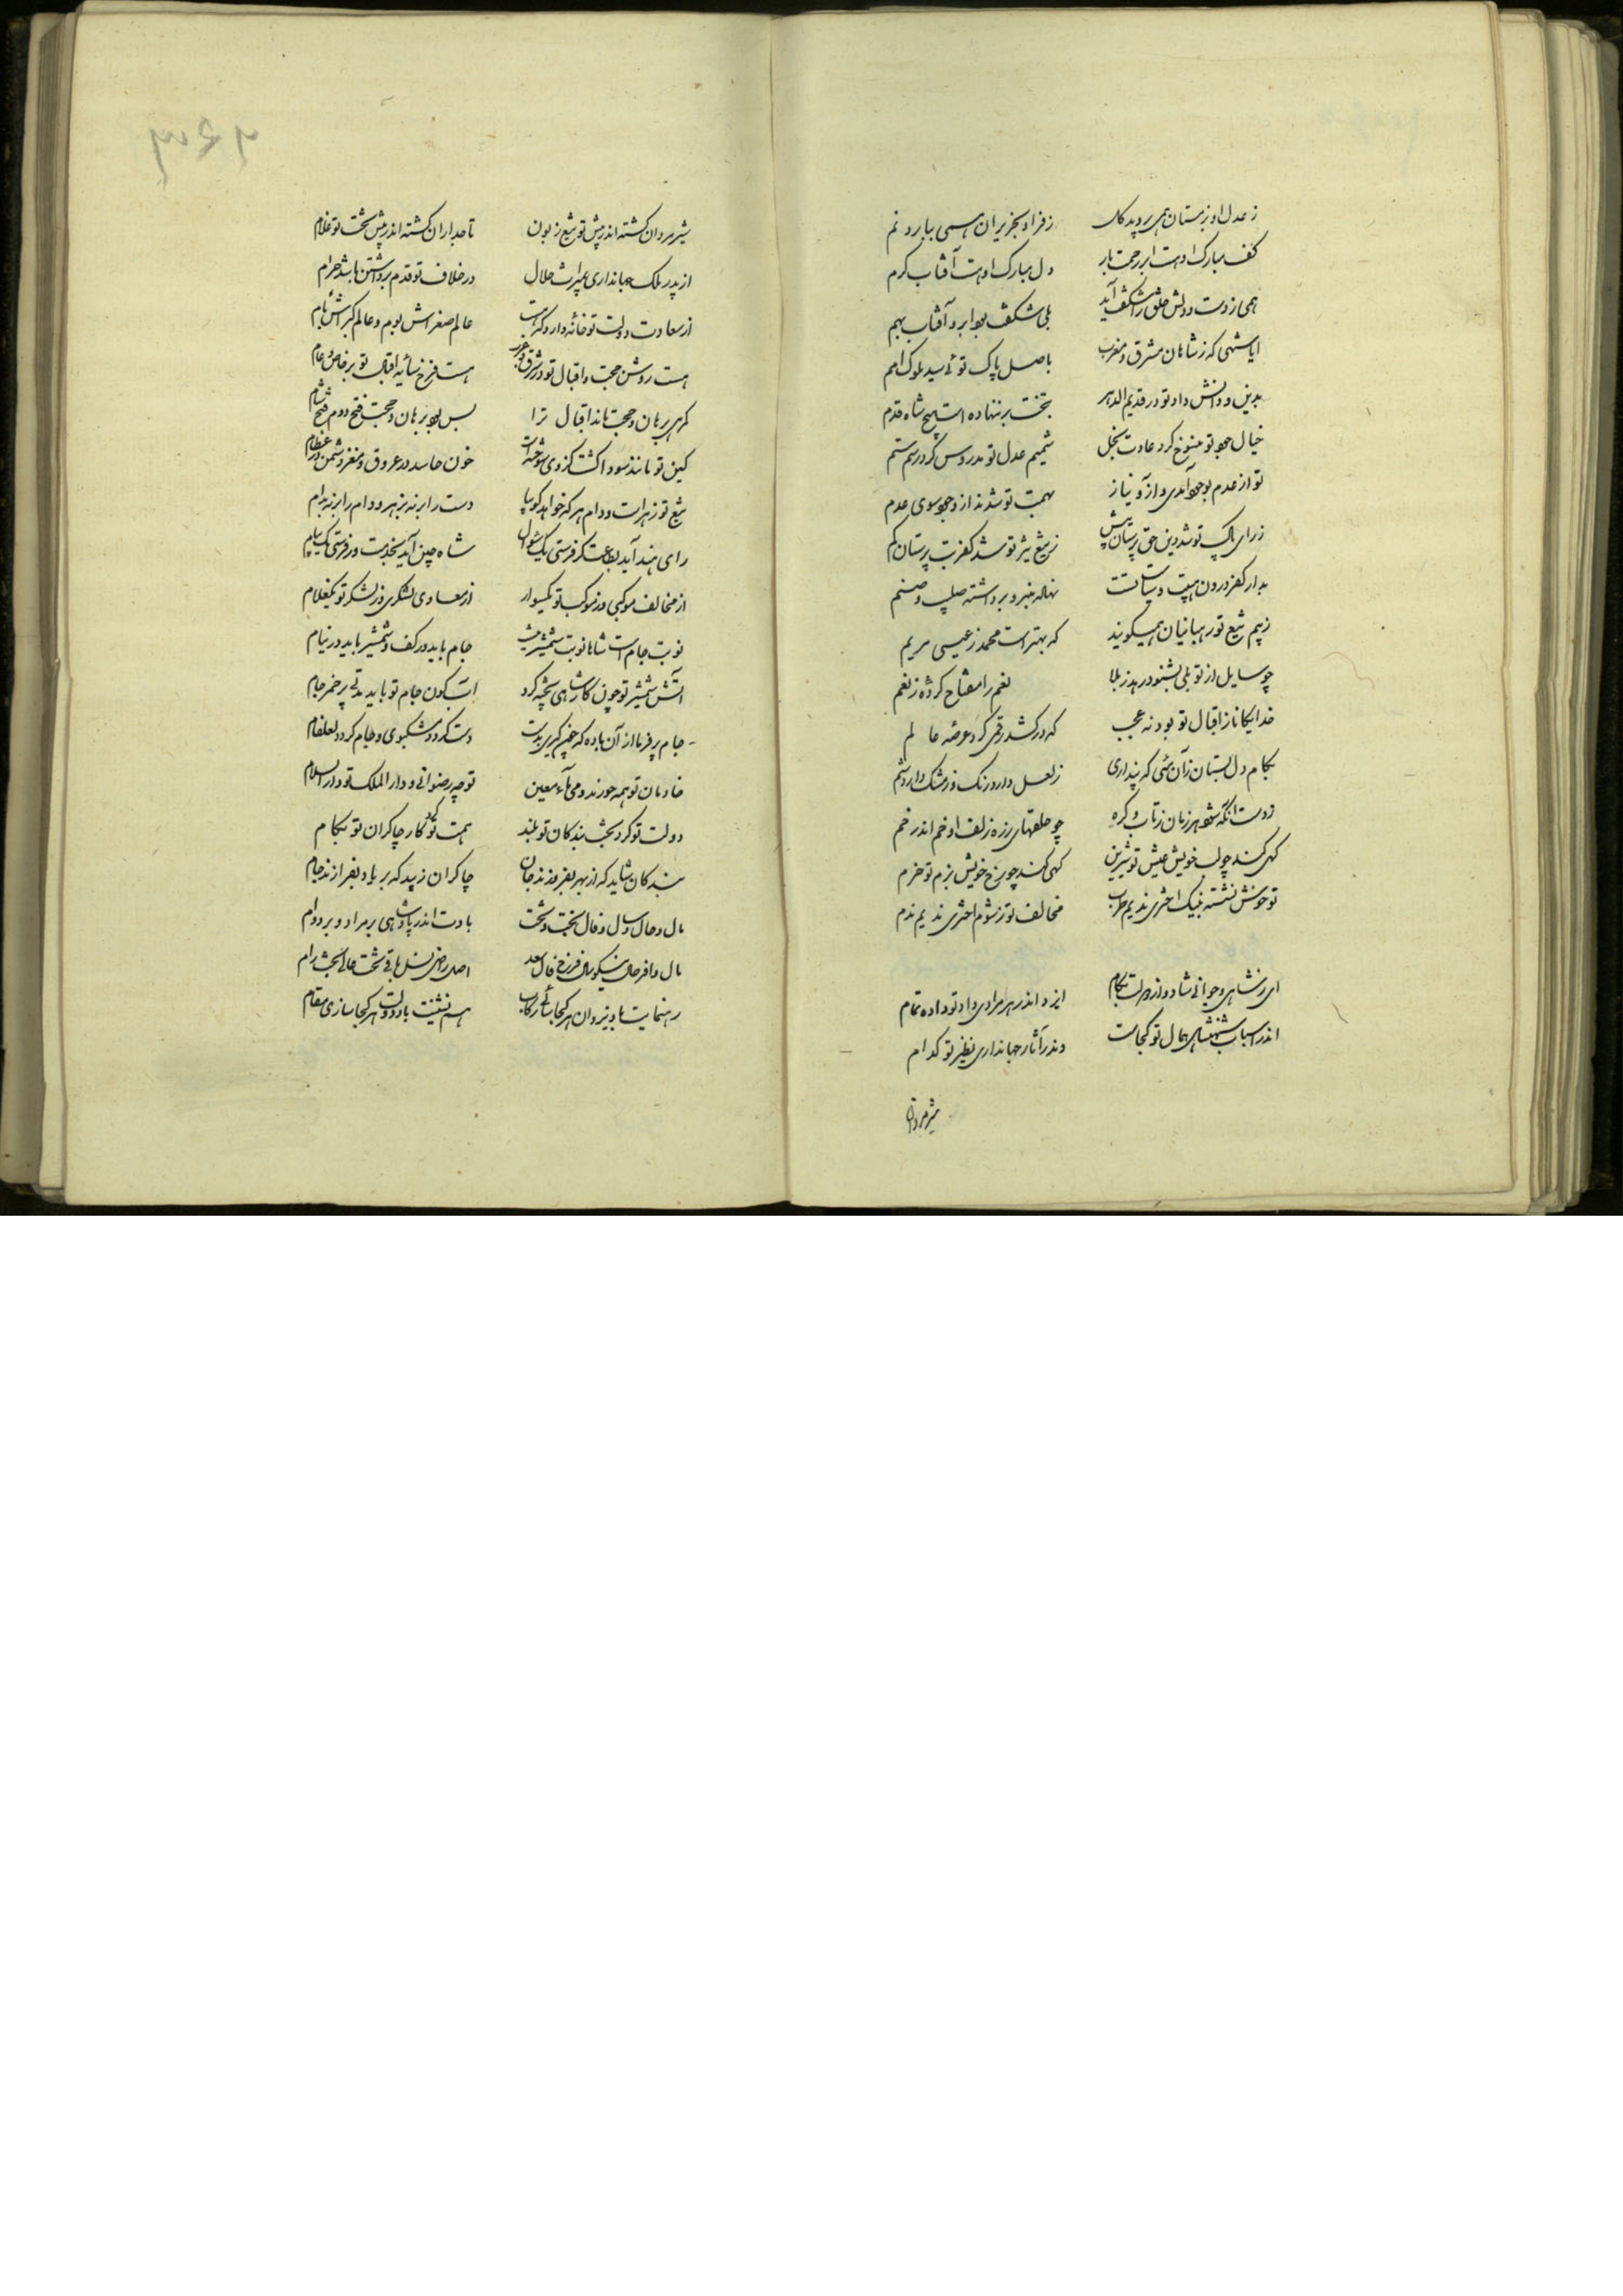 ز عدل او بزمستان همی بروید کل زفر او بحزیران همی ببارد نم
کف مبارک اوست ابر رحمت بار دل مبارک اوست آفتاب کرم
همی ز دست و دلش خلق را شکفت آید بلی شکفت بود ابر و آفتاب بهم
ایا شهی که ز شاهان مشرق و مغرب باصل پاک توئی سید ملوک امم
بدین و دانش و داد تو در قدیم الدهر بتخت بر ننهاده است هیچ شاه قدم
خیال جود تو منسوخ کرد عادت بخل شمیم عدل تو مدروس کرد رسم ستم
تو از عدم بوجود آمدی و آز و نیاز بهمت تو شدند از وجود سوی عدم
ز رای پاک تو شد دین حق پرستان بیش ز تیغ تیز تو شد کفر بت پرستان کم
بدار کفر درون هیبت و سیاست تست نهاده منبر و برداشته صلیب و صنم
ز بیم تیغ تو رهبانیان همیگویند که بهتر است محمد ز عیسی مریم
چو سایل از تو بلی بشنود رهد ز بلا نعم را مفتاح کرده ز نعم
خدایکانا ز اقبال تو بود نه عجب که در کشد رقمی کرد عرصه عالم
بکام دل بستان زآن بتی که پنداری ز لعل دارد رنک و ز مشک دارد شم
ز دست آنکه شود هر زمان ز تاب و کره چو حلقهای زره زلف او خم اندر خم
کهی کند چو لب خویش عیش تو شیرین کهی کند چو رخ خویش بزم تو خرم
تو خوش نشسته بنیک اختری ندیم طرب مخالف تو ز شوم اختری ندیم ندم
ای ز شاهی و جوانی شاد و از دولت بکام ایزد اندر هر مرادی داد تو داده تمام
اندر اسباب شهنشاهی همال تو کجاست وندر آثار جهانداری نظیر تو کدام
شیر مردان
شیر مردان کشته اندر پیش تو تیغ زبون تاجداران کشته اندر پیش تخت تو غلام
از پدر ملک جهانداری بمیراث حلال در خلاف تو قدم برداشتن باشد حرام
از سعادت دولت تو خانه دارد کز عالم صغراش بوم و عالم کبراش بام
هست روشن حجت و اقبال تو در شرق و غرب هست فرخ سایه اقبال تو بر خاص و عام
کر همی برهان و حجت باید اقبال ترا بس بود برهان و حجت فتح روم و فتح شام
کین تو مانند سوداکشت کز وی سوخته است خون حاسد در عروق و مغز دشمن در عظام
تیغ تو زهرست و دام هر که خواهد کو بیا دست را بر نه بزهر و دام را بر نه بدام
رای هند آید بطاعت کر فرستی یک رسول شاه چین آید بخدمت ور فرستی یک پیام
از مخالف موکبی وز موکب تو یکسوار از معادی لشکری وز لشکر تو یکغلام
نوبت جام است شاها نوبت شمشیر نیست جام باید در کف و شمشیر باید در نیام
آتش شمشیر تو چون کار شاهی پخته کرد آب کون جام تو باید مدتی پر خمر جام
جام پر فرما از آن باده که چون کیری بدست دست کردد مشکبوی و جام کردد لعلفام
خادمان تو همه حورند و می ماء معین تو چو رضوانی و دار الملک تو دار السلام
دولت تو کرد بخت بندکان تو بلند همت تو کرد کار چاکران تو بکام
بندکان شاید که از بهر بفروزند جان چاکران زیبد که بر یاد بفرازند جام
مال و حال و سال و فال و بخت و تخت بادت اندر پادشاهی بر مراد و بر دوام
مال وافر حال نیکو سال فرخ فال سعد اصل راضی نسل باقی تخت عالی بخت رام
رهنمایت باد یزدان هر کجا تابی رکاب همنشینت باد دولت هر کجا سازی مقام